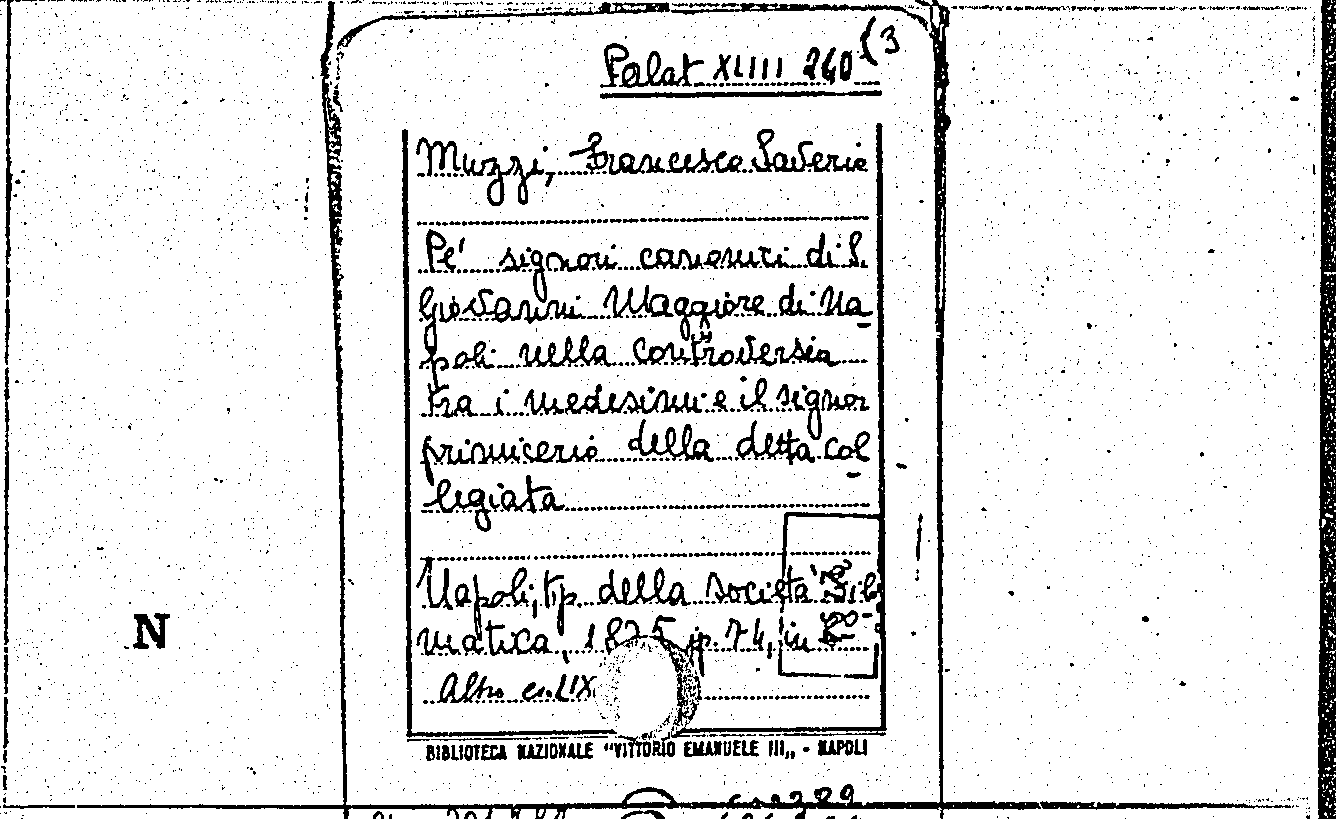 Palat XLIII 240 (3
Muzzi, Francesco Saverio
Pe' signori canonici di S.
Giovanni Maggiore di Na-
poli nella controversia
tra i medesimi e il signor
primicerio della detta col-
legiata
Napoli, tip. della società Fil-
matica, 1825 p. 74, in 8°
Altro es. LIX
N
BIBLIOTECA NAZIONALE "VITTORIO EMANUELE III„ - NAPOLI